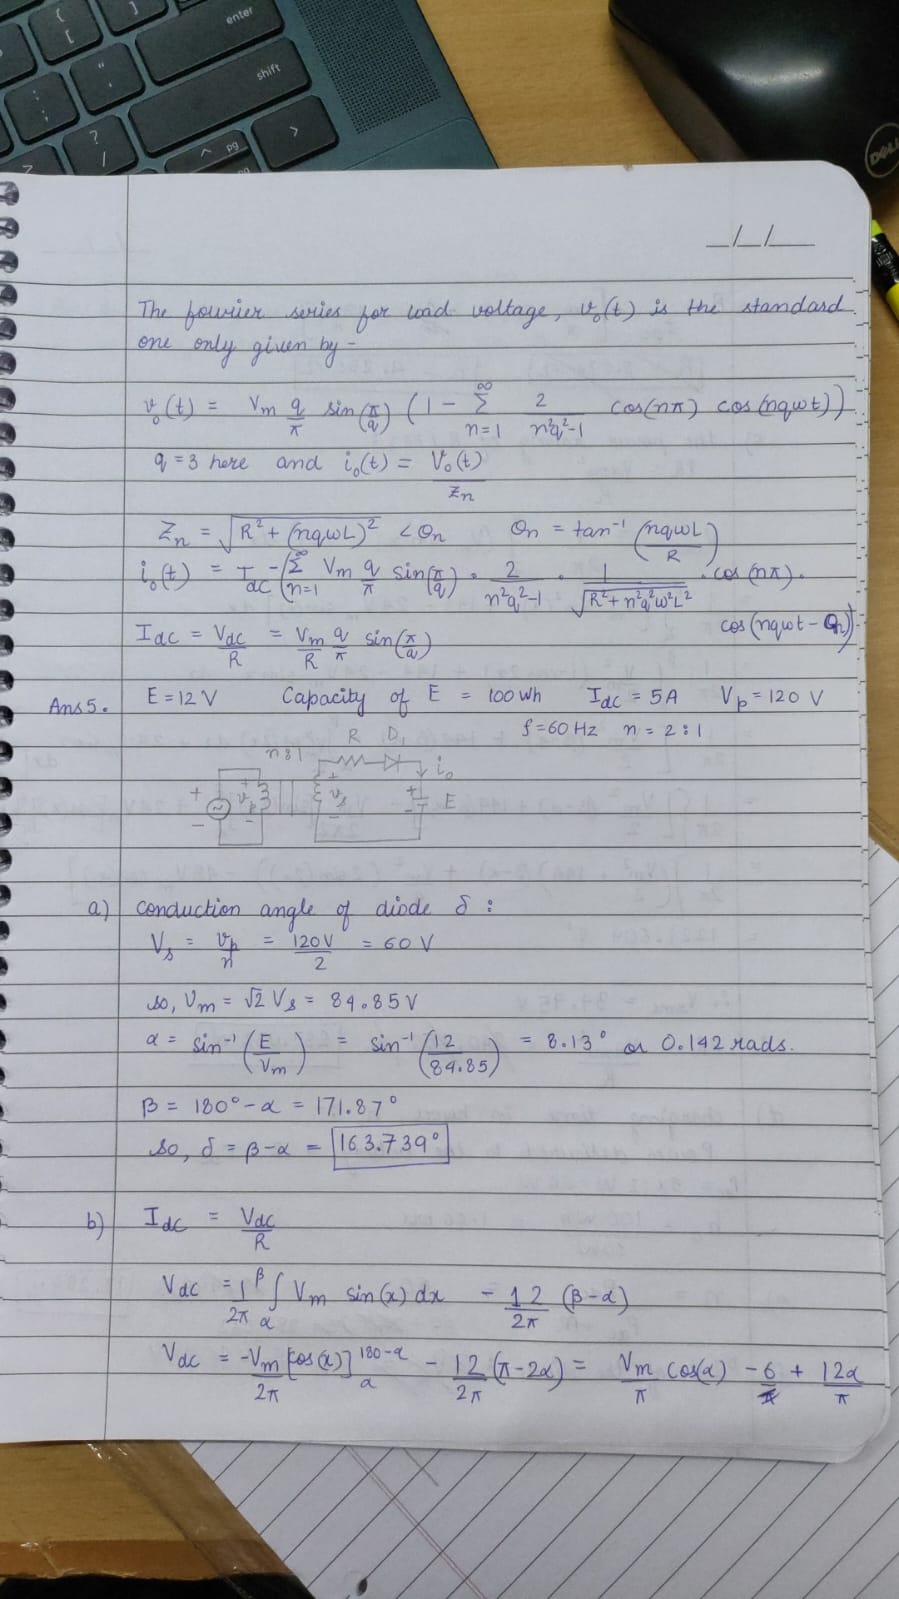 enter
shift
pg
DELL
_/_/_
The fourier series for load voltage, v₀(t) is the standard
one only given by -
v₀(t) = Vm q/π sin(π/q) (1 - Σ_{n=1}^{∞} 2/(n²q²-1) cos(nπ) cos(nqωt))
q = 3 here and i₀(t) = V₀(t)/Zn
Zn = √(R² + (nqωL)²) <Θn Θn = tan⁻¹ (nqωL/R)
i₀(t) = Idc - (Σ_{n=1}^{∞} Vm q/π sin(π/q) · 2/(n²q²-1) · 1/√(R²+n²q²ω²L²) · cos(nπ) ·
cos(nqωt - Θn))
Idc = Vdc/R = Vm/R q/π sin(π/q)
Ans 5. E = 12 V Capacity of E = 100 Wh Idc = 5A Vp = 120 V
f = 60 Hz n = 2:1
n:1 R D₁ i₀
+ - + vp - + vs + - E
a) conduction angle of diode δ :
Vs = vp/n = 120V/2 = 60 V
so, Vm = √2 Vs = 84.85V
α = sin⁻¹(E/Vm) = sin⁻¹(12/84.85) = 8.13° or 0.142 rads.
β = 180° - α = 171.87°
so, δ = β-α = 163.739°
b) Idc = Vdc/R
Vdc = 1/2π ∫_α^β Vm sin(x) dx - 12/2π (β-α)
Vdc = -Vm/2π [cos(x)]_α^{180-α} - 12/2π (π-2α) = Vm/π cos(α) - 6 + 12α/π